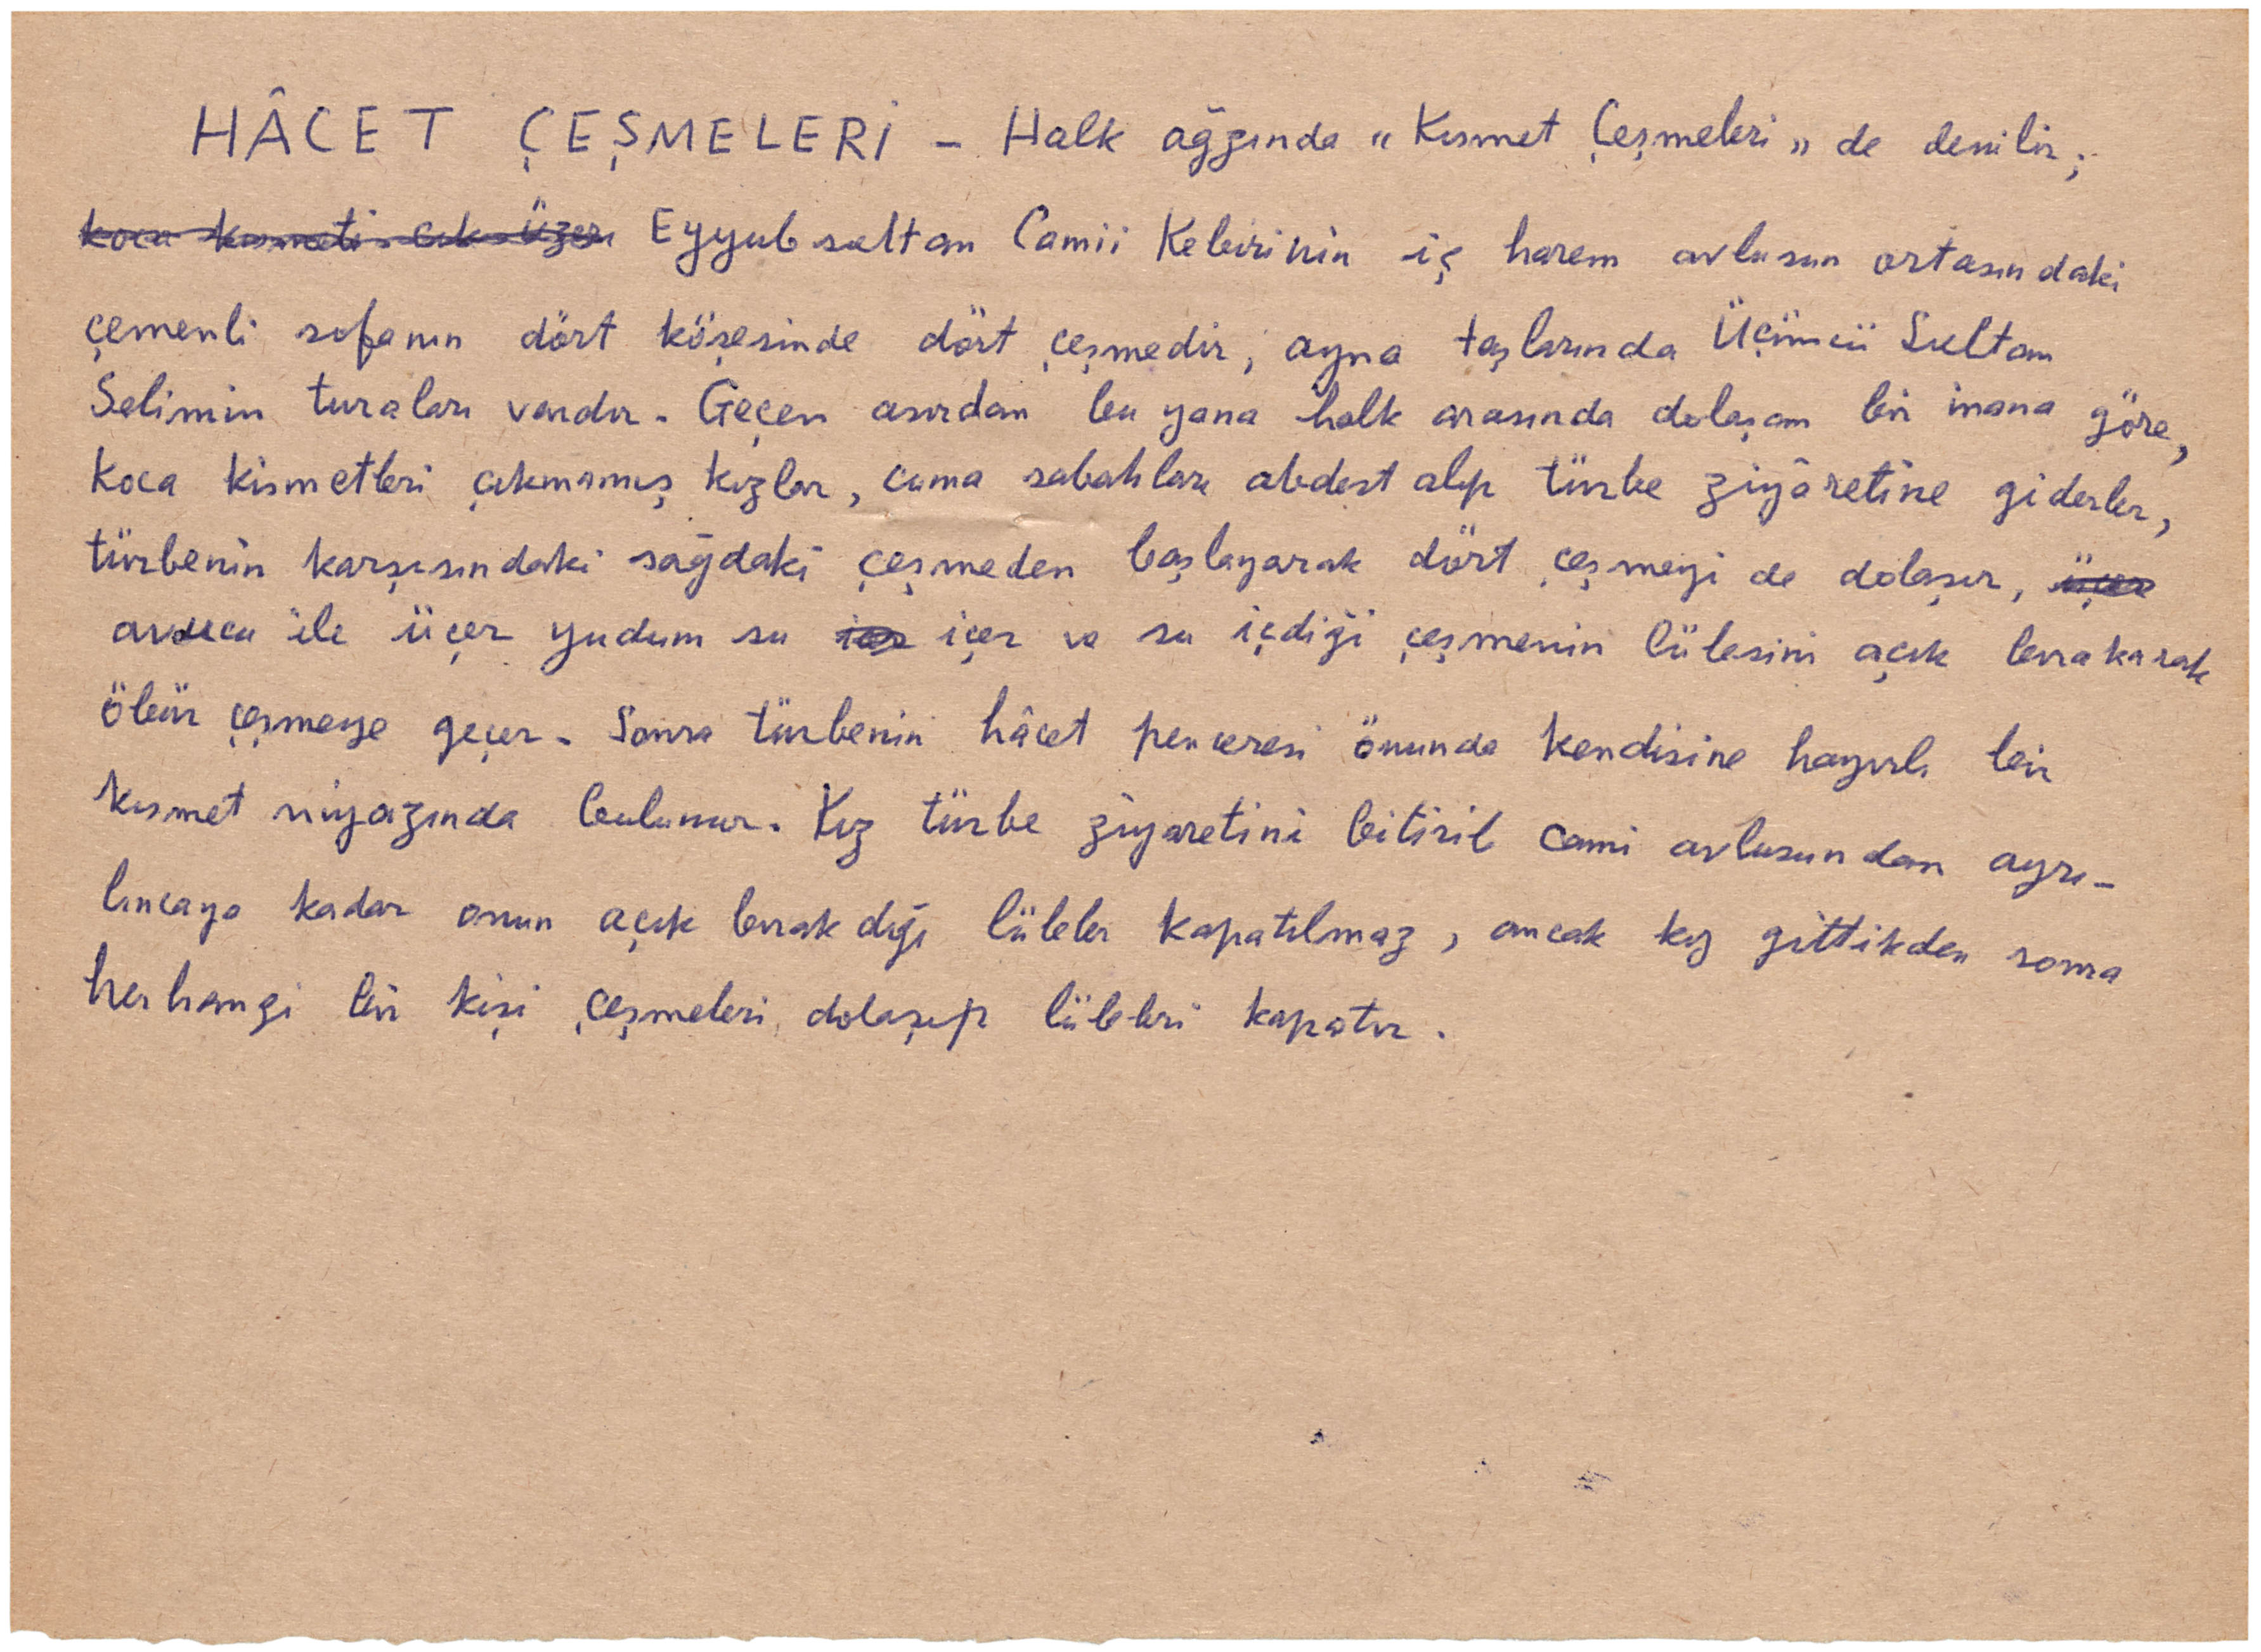 HÂCET ÇEŞMELERİ – Halk ağzında "Kısmet Çeşmeleri" de denilir;
Eyyubsultan Camii Kebirinin iç harem avlusun ortasındaki
çemenli sofanın dört köşesinde dört çeşmedir, ayna taşlarında Üçüncü Sultan
Selimin turaları vardır. Geçen asırdan bu yana halk arasında dolaşan bir inana göre,
koca kismetleri çıkmamış kızlar, cuma sabahları abdest alıp türbe ziyâretine giderler,
türbenin karşısındaki sağdaki çeşmeden başlayarak dört çeşmeyi de dolaşır, üçer
avucu ile üçer yudum su içer ve su içdiği çeşmenin lülesini açık bırakarak
öbür çeşmeye geçer. Sonra türbenin hâcet penceresi önunde kendisine hayırlı bir
kısmet niyazında bulunur. Kız türbe ziyaretini bitirib cami avlusundan ayrı-
lıncaya kadar onun açık bırakdığı lüleler kapatılmaz, ancak kız gittikden sonra
herhangi bir kişi çeşmeleri dolaşıp lüleleri kapatır.